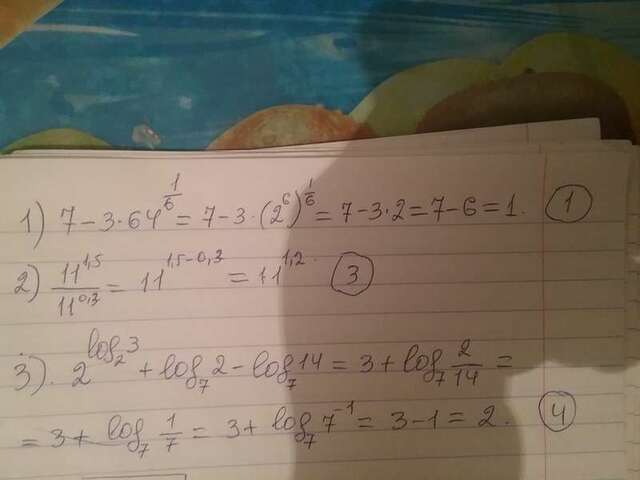 1) 7 - 3 · 64^(1/6) = 7 - 3 · (2^6)^(1/6) = 7 - 3 · 2 = 7 - 6 = 1. ①
2) 11^(1,5) / 11^(0,3) = 11^(1,5-0,3) = 11^(1,2). ③
3). 2^(log₂3) + log₇2 - log₇14 = 3 + log₇ 2/14 =
= 3 + log₇ 1/7 = 3 + log₇ 7^(-1) = 3 - 1 = 2. ④